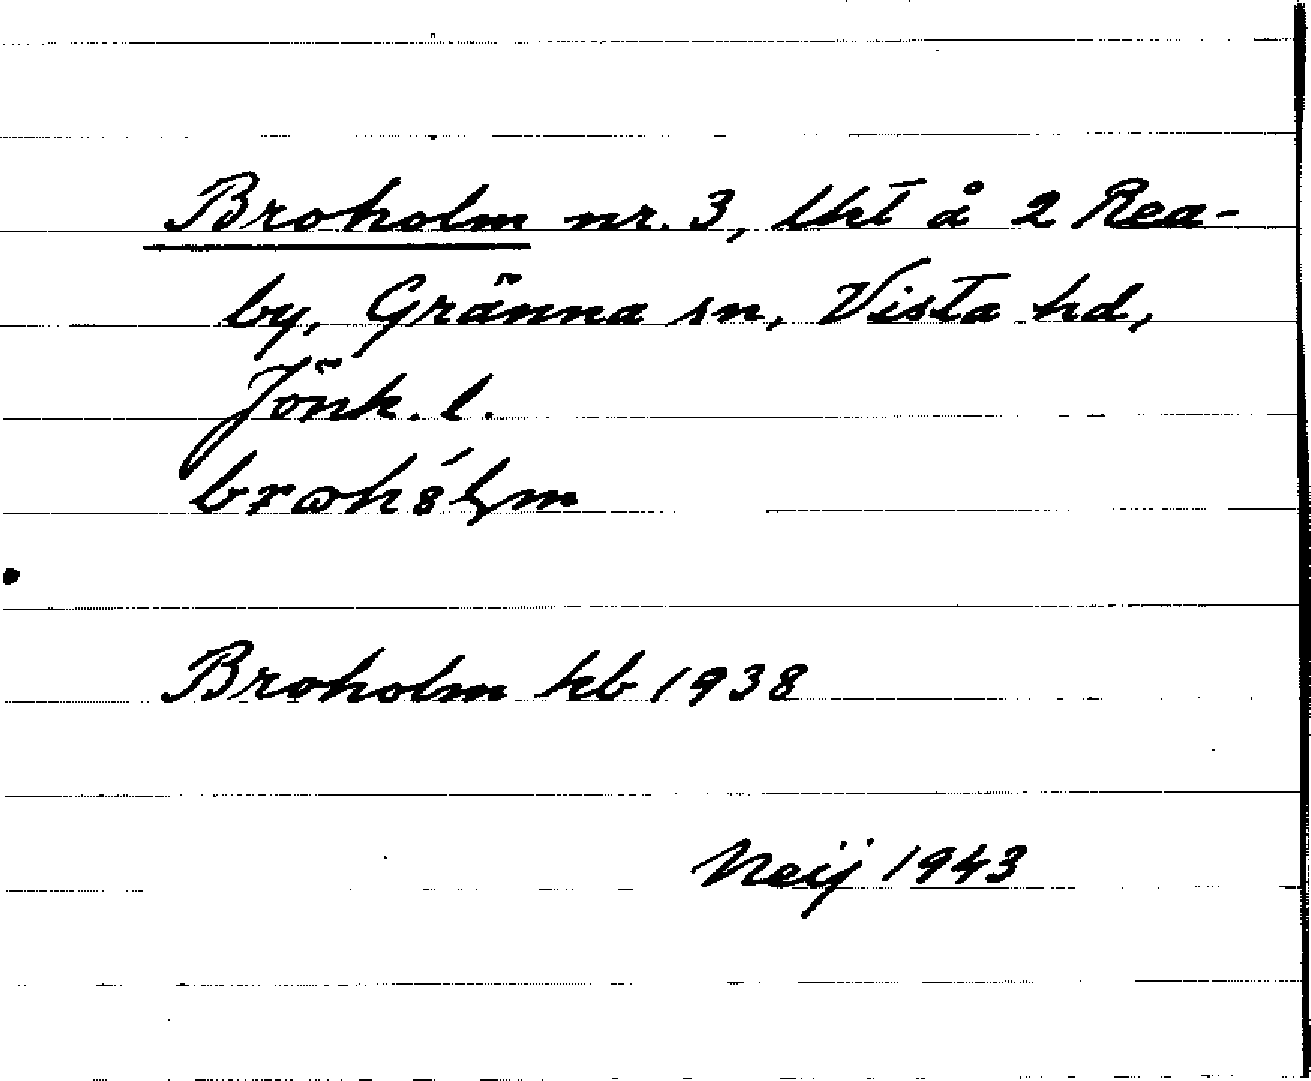 Broholm nr. 3, lht å 2 Rea-
by, Gränna sn, Vista hd,
Jönk. l.
Broholm kb 1938
Neij 1943